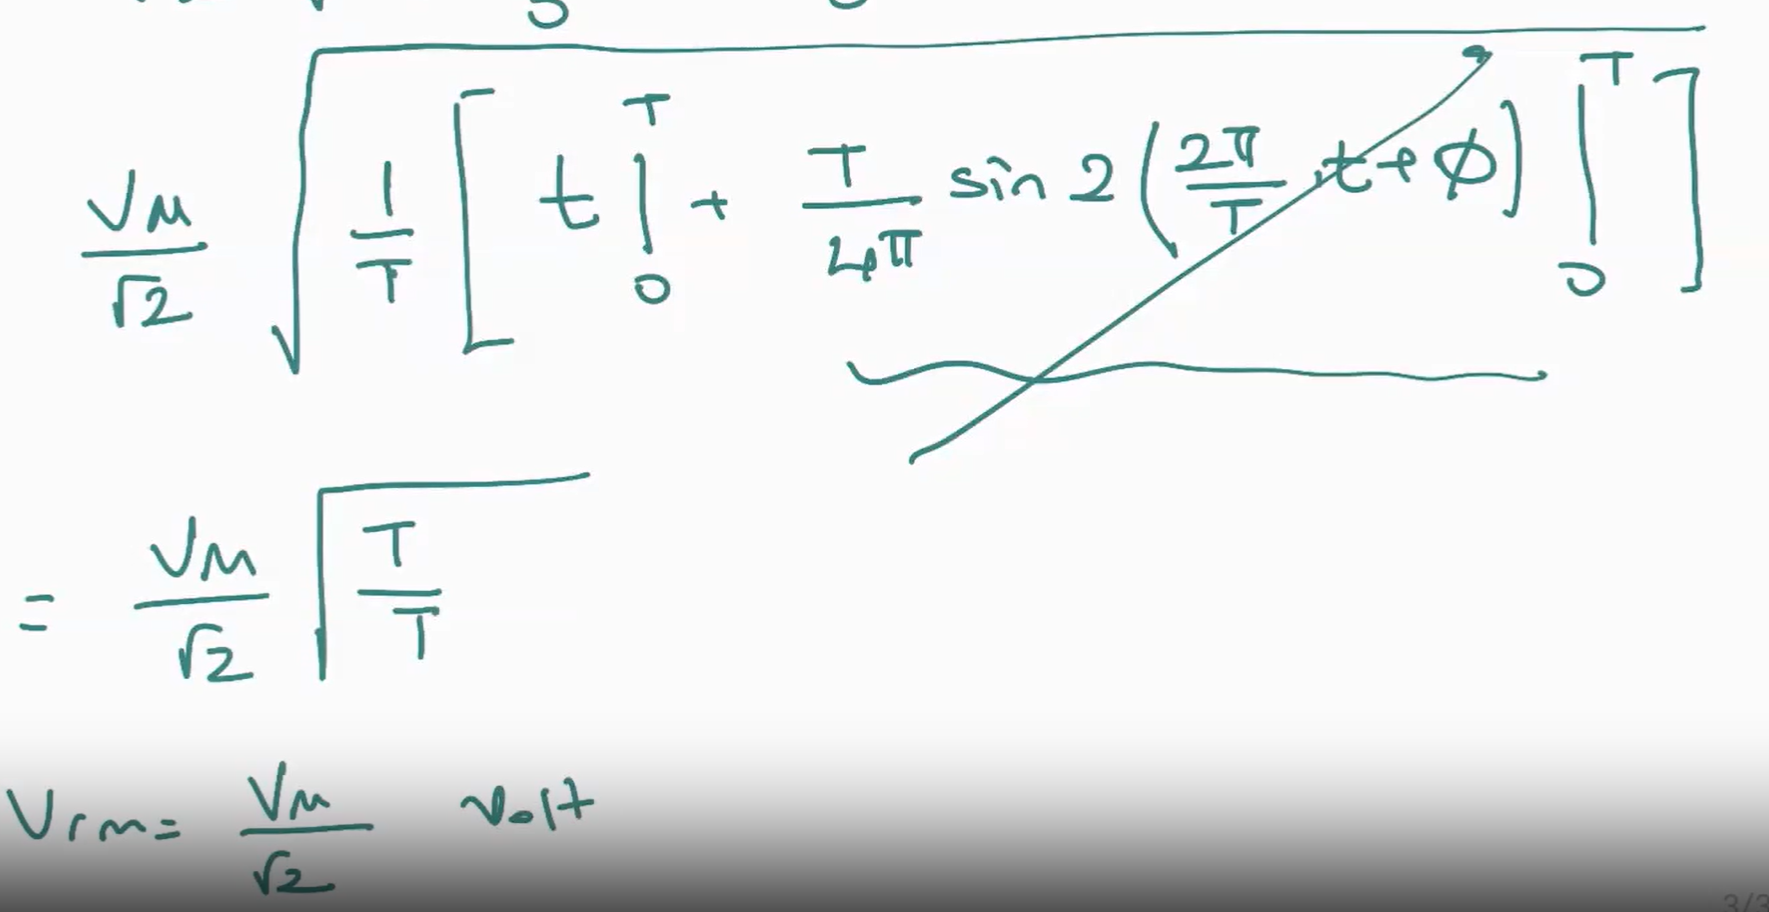 VM/√2 √(1/T [ t |₀ᵀ + T/4π sin 2 (2π/T t + φ) |₀ᵀ ])
= VM/√2 √(T/T)
Vrm= VM/√2 volt
3/3